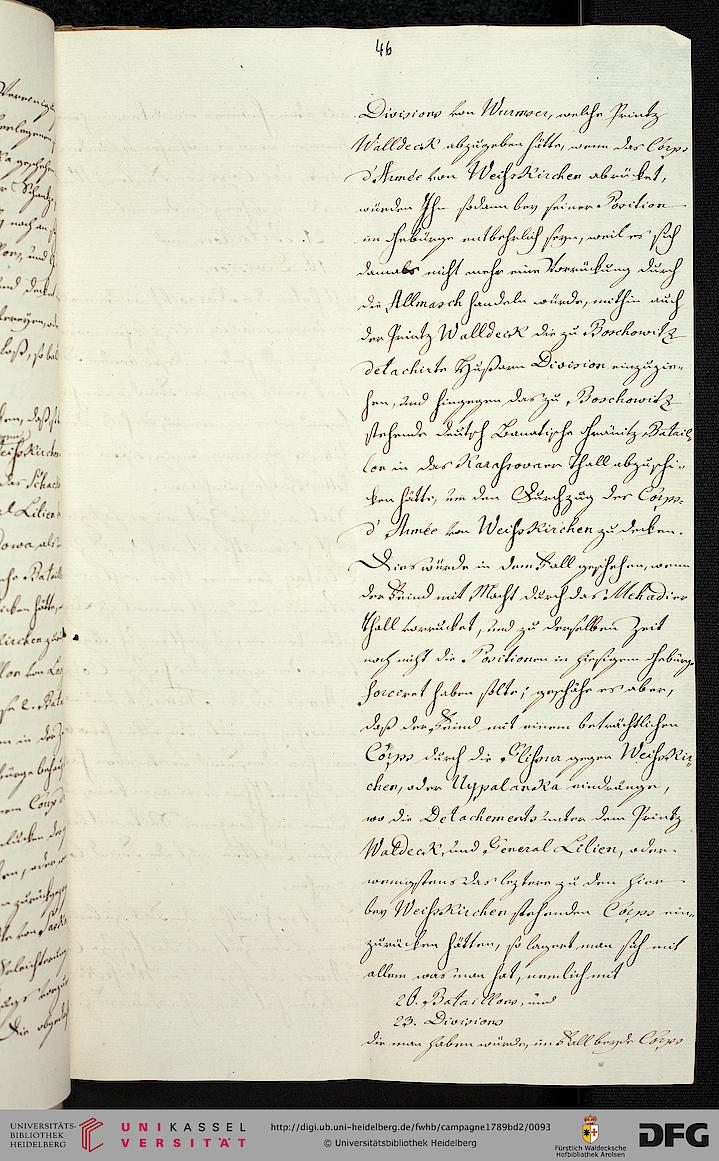 46
Divisions von Wurmser, welche Printz
Walldeck abzugeben hätte, wenn das Corps
d'Armée von Weisskirchen abrücket,
würden Ihn sodann bey seiner Position
im Gebürge entbehrlich seyn, weil es sich
damals nicht mehr eine Vorrückung durch
die Allmasch handeln würde, mithin auch
der Printz Walldeck die zu Boschowitz
detachirte Hußarn Division einzuzie-
hen, und hingegen das zu Boschowitz
stehende Deutsch Banatische Gränitz Batail-
lon in das Karassovaer Thall abzuschi-
cken hätte, um den Durchzug des Corps
d'Armée von Weisskirchen zu decken.
Dies würde in dem Fall geschehen, wenn
der Feind mit Macht durch das Mehadier
Thall vorrucket, und zu derselben Zeit
noch nicht die Positionen in hiesigem Gebürge
forciret haben sollte; geschähe es aber,
daß der Feind mit einem beträchtlichen
Corps durch die Klisura gegen Weisskir-
chen, oder Uypalanka eindränge,
wo die Detachements unter dem Printz
Waldeck, und General Lilien, oder
wenigstens das leztere zu den hier
bey Weisskirchen stehenden Corps ein-
zurücken hätten, so lagert man sich mit
allem was man hat, nemlich mit
20. Bataillons, und
23. Divisions
die man haben würde, im Fall beyde Corps
UNIVERSITÄTS-
BIBLIOTHEK
HEIDELBERG
UNIKASSEL
VERSITÄT
http://digi.ub.uni-heidelberg.de/fwhb/campagne1789bd2/0093
© Universitätsbibliothek Heidelberg
Fürstlich Waldecksche
Hofbibliothek Arolsen
DFG